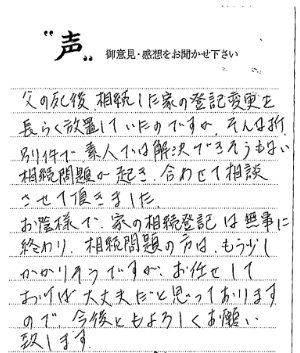 "声" 御意見・感想をお聞かせ下さい
父の死後、相続した家の登記変更を
長らく放置していたのですが、そんな折、
別件で、素人では解決できそうもない
相続問題が起き、合わせて相談
させて頂きました。
お陰様で、家の相続登記は無事に
終わり、相続問題の方は、もう少し
かかりそうですが、お任せして
おけば大丈夫だと思っております
ので、今後ともよろしくお願い
致します。